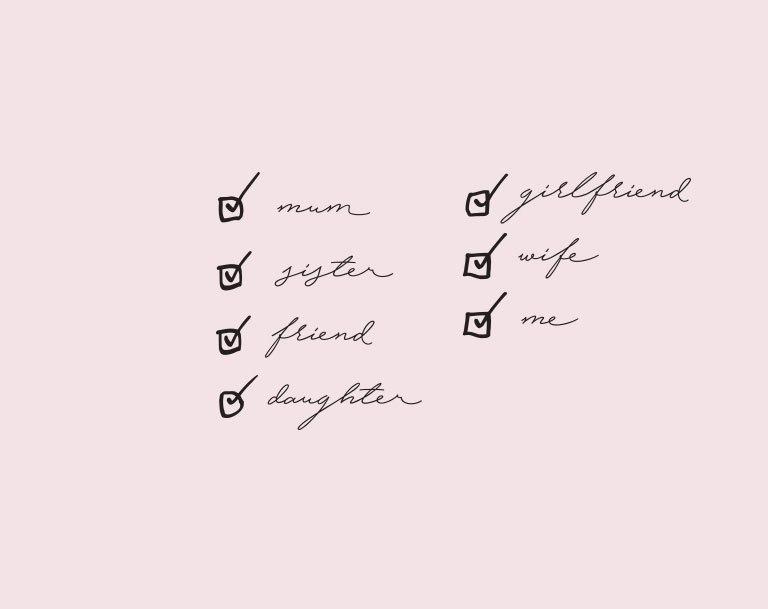 mum
sister
friend
daughter
girlfriend
wife
me